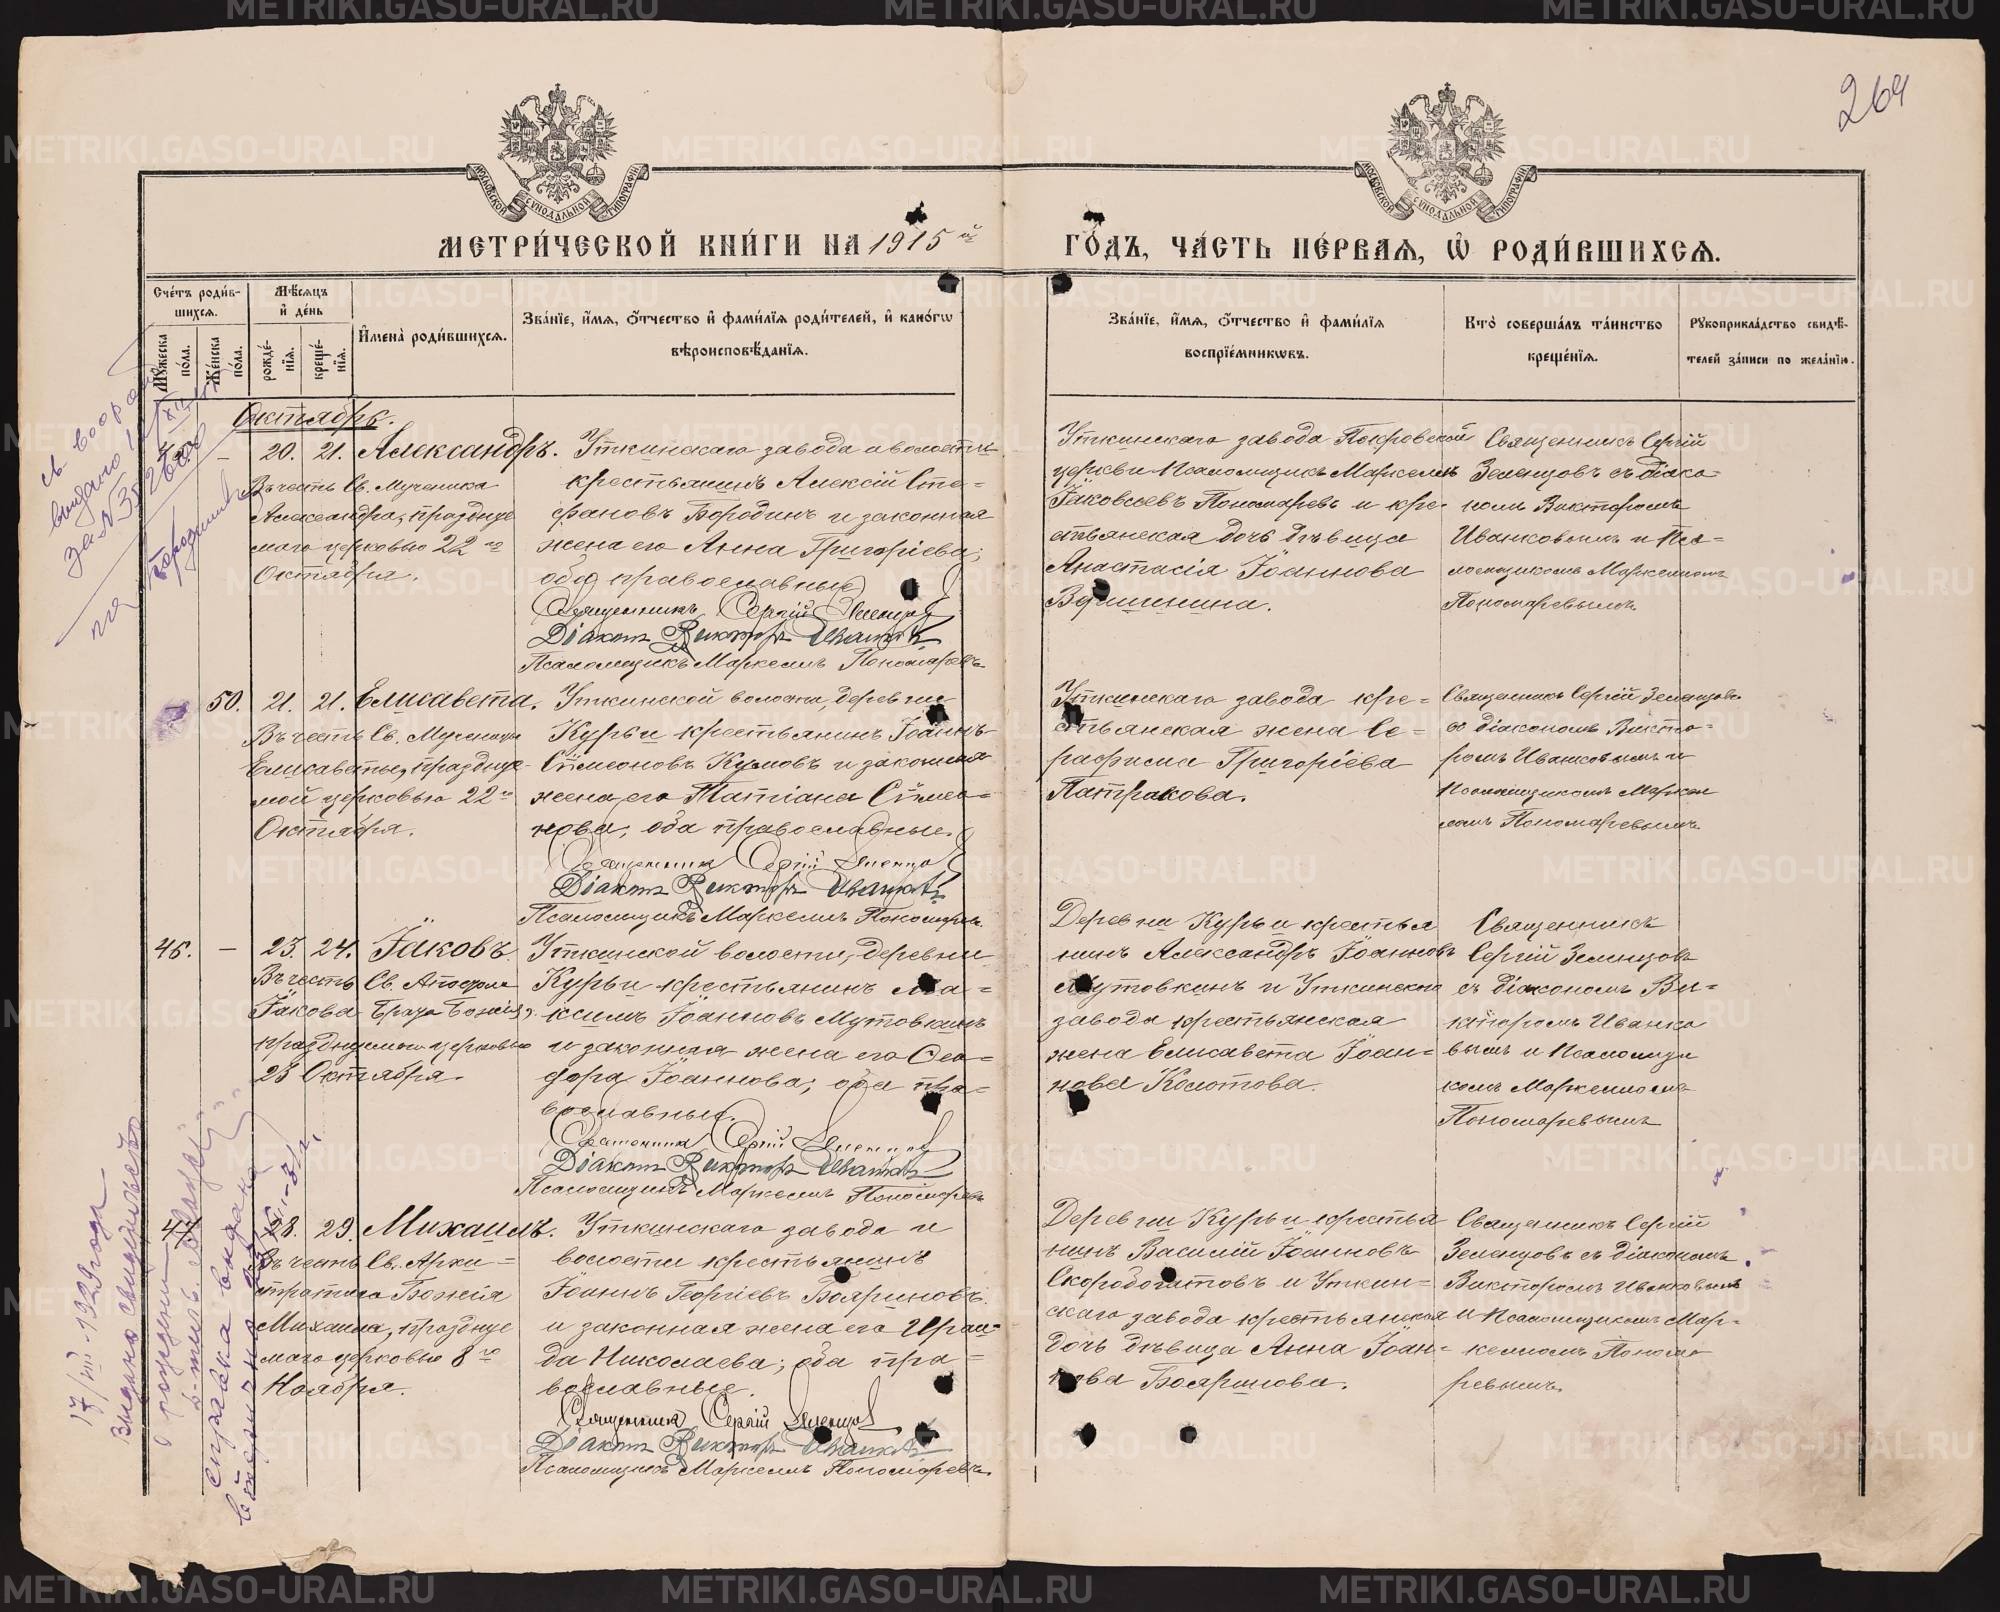 264
МОСКОВСКОЙ СѴНОДАЛЬНОЙ ТИПОГРАФІИ
МОСКОВСКОЙ СѴНОДАЛЬНОЙ ТИПОГРАФІИ
МЕТРИ́ЧЕСКОЙ КНИ́ГИ НА 1915 й
ГО́ДЪ, ЧА́СТЬ ПЕ́РВАѦ, Ѽ РОДИ́ВШИХСѦ.
Сче́тъ роди́вшихсѧ.
Мꙋ́жеска по́ла.
Же́нска по́ла.
Мѣ́сѧцъ и҆ де́нь
рожде́нїѧ.
креще́нїѧ.
И҆мена̀ роди́вшихсѧ.
Зва́нїе, и҆́мѧ, ѻ҆́тчество и҆ фами́лїѧ роди́телей, и҆ како́гѡ
вѣроисповѣ́данїѧ.
Зва́нїе, и҆́мѧ, ѻ҆́тчество и҆ фами́лїѧ
воспрїе́мникѡвъ.
Кто̀ соверша́лъ та́инство
креще́нїѧ.
Рꙋкоприкла́дство свидѣ́-
телей за́писи по жела́нїю.
Октябрь.
— 20. 21. Александръ.
Въ честь Св. Мученика
Александра, праздну҆е
маго церковью 22 го
Октября.
Уткинскаго завода и волости
крестьянинъ Алексій Сте-
фановъ Бородинъ и законная
жена его Анна Григоріева;
оба православные
Священникъ Сергій Зеленцов
Діаконъ Викторъ Иванков
Псаломщикъ Маркеллъ Пономаревъ
Уткинскаго завода Покровской
церкви Псаломщикъ Маркеллъ
Іаковлевъ Пономаревъ и кре-
стьянская дочь дѣвица
Анастасія Іоаннова
Священникъ Сергій
Зеленцовъ съ діако-
номъ Викторомъ
Иванковымъ и Пса-
ломщикомъ Маркелломъ
Пономаревымъ.
50. 21. 21. Елисавета.
Въ честь Св. Мученицы
Елисаветы, праздну҆е-
мой церковью 22 го
Октября.
Уткинской волости, деревни
Курьи крестьянинъ Іоаннъ
Сѵмеоновъ Кумовъ и законная
жена его Татіана Сѵмео-
нова; оба православные.
Священникъ Сергій Зеленцов
Діаконъ Викторъ Иванков
Псаломщикъ Маркеллъ Пономаревъ.
Уткинскаго завода кре-
стьянская жена Се-
рафима Григоріева
Патракова.
Священникъ Сергій Зеленцовъ
со діакономъ Викто-
ромъ Иванковымъ и
Псаломщикомъ Маркел
ломъ Пономаревымъ.
46. — 23. 24. Іаковъ.
Въ честь Св. Апостола
Іакова Брата Божія,
празднуемаго церковью
23 Октября.
Уткинской волости, деревни
Курьи крестьянинъ Ма-
ксимъ Іоанновъ Мутовкинъ
и законная жена его Ѳео-
дора Іоаннова; оба пра-
вославные.
Священникъ Сергій Зеленцов
Діаконъ Викторъ Иванков
Псаломщикъ Маркеллъ Пономаревъ
Деревни Курьи крестья
нинъ Александръ Іоанновъ
Мутовкинъ и Уткинскаго
завода крестьянская
жена Елисавета Іоан-
нова Колотова.
Священникъ
Сергій Зеленцовъ
съ діакономъ Ви-
кторомъ Иванко
вымъ и Псаломщи
комъ Маркелломъ
Пономаревымъ
47 28. 29. Михаилъ.
Въ честь Св. Архи-
стратига Божія
Михаила, праздну҆е
маго церковью 8 го
Ноября.
Уткинскаго завода и
волости крестьянинъ
Іоаннъ Георгіевъ Бояриновъ
и законная жена его Ираи-
да Николаева; оба пра-
вославные.
Священникъ Сергій Зеленцов
Діаконъ Викторъ Иванков
Псаломщикъ Маркеллъ Пономаревъ.
Деревни Курьи крестья
нинъ Василій Іоанновъ
Скоробогатовъ и Уткин-
скаго завода крестьянская
дочь дѣвица Анна Іоан-
нова Бояринова.
Священникъ Сергій
Зеленцовъ съ діакономъ
Викторомъ Иванковымъ
и Псаломщикомъ Мар-
келломъ Понома
ревымъ.
17/VIII-1929 года
Выдано свидѣтельство
о рожденіи
справка выдана
METRIKI.GASO-URAL.RU